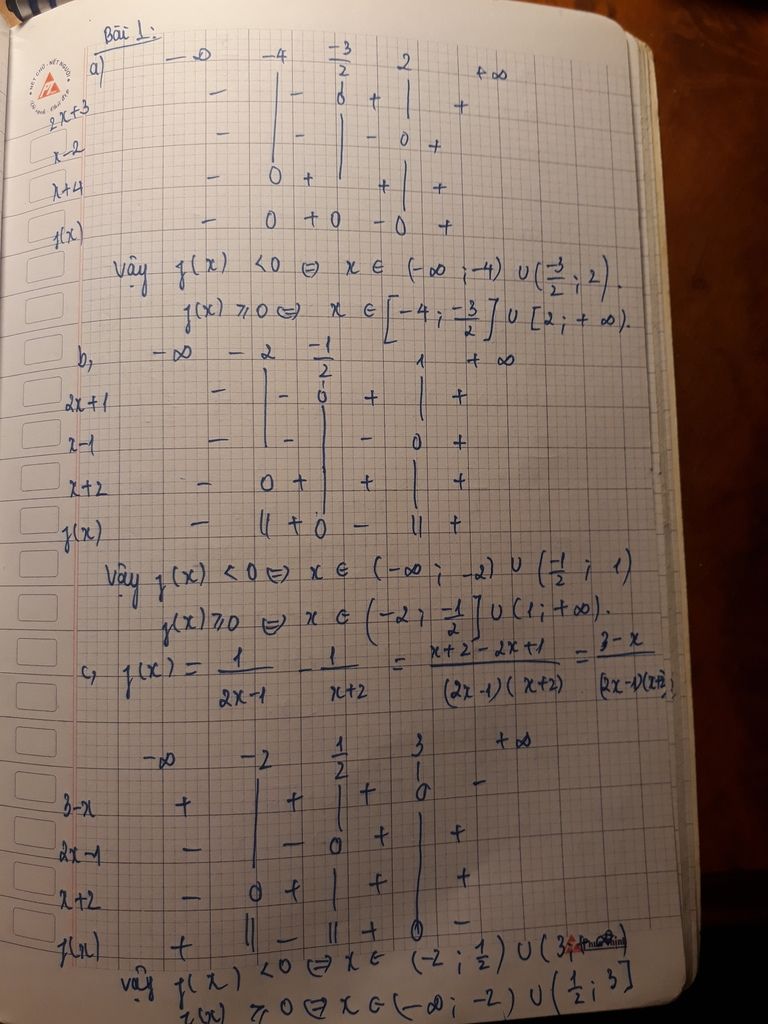 Bài 1:
a) -∞ -4 -3/2 2 +∞
2x+3 - | - 0 + | +
x-2 - | - | - 0 +
x+4 - 0 + | + | +
f(x) - 0 + 0 - 0 +
Vậy f(x) <0 ⇔ x ∈ (-∞ ; -4) ∪ (-3/2 ; 2).
f(x) ⩾0 ⇔ x ∈ [-4 ; -3/2] ∪ [2 ; +∞).
b, -∞ -2 -1/2 1 +∞
2x+1 - | - 0 + | +
x-1 - | - | - 0 +
x+2 - 0 + | + | +
f(x) - || + 0 - || +
Vậy f(x) <0 ⇔ x ∈ (-∞ ; -2) ∪ (-1/2 ; 1)
f(x) ⩾0 ⇔ x ∈ (-2 ; -1/2] ∪ (1 ; +∞).
c, f(x) = 1/(2x-1) - 1/(x+2) = (x+2-2x+1)/((2x-1)(x+2)) = (3-x)/((2x-1)(x+2))
-∞ -2 1/2 3 +∞
3-x + | + | + 0 -
2x-1 - | - 0 + | +
x+2 - 0 + | + | +
f(x) + || - || + 0 -
Vậy f(x) <0 ⇔ x ∈ (-2 ; 1/2) ∪ (3 ; +∞)
f(x) ⩾ 0 ⇔ x ∈ (-∞ ; -2) ∪ (1/2 ; 3]